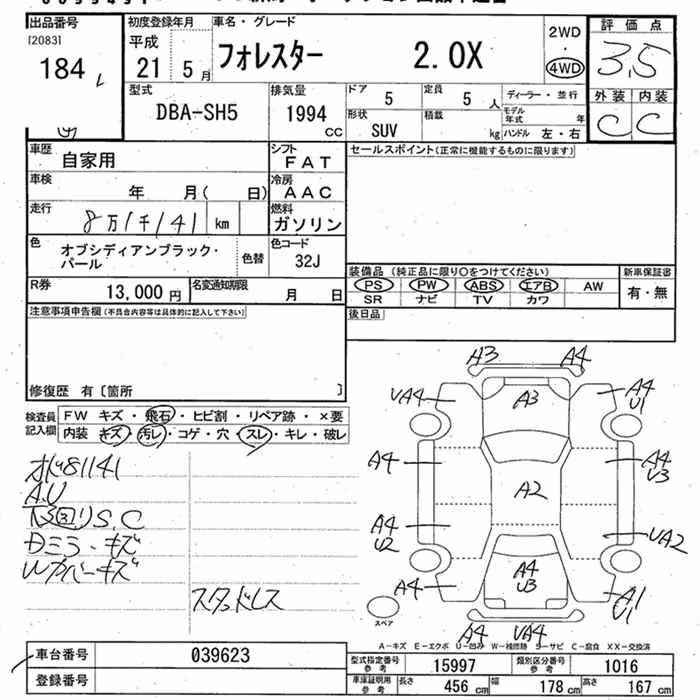 出品番号
[20831
184
初度登録年月
平成
21 5月
車名・グレード
フォレスター 2.0X
2WD
・
4WD
評価点
3.5
外装 内装
C C
型式
DBA-SH5
排気量
1994
cc
ドア
5
定員
5人
ディーラー・並行
形状
SUV
積載
kg
モデル年式 年
ハンドル 左・右
車歴
自家用
シフト
FAT
セールスポイント(正常に機能するものに限ります)
車検
年 月( 日)
冷房
AAC
走行
8万1千141 km
燃料
ガソリン
色
オブシディアンブラック・
パール
色替
色コード
32J
装備品 (純正品に限り〇をつけてください)
新車保証書
PS PW ABS エアB AW
有・無
SR ナビ TV カワ
R券
13,000円
名変通知期限
月 日
後日品
注意事項申告欄(不具合内容等は具体的に記入して下さい)
修復歴 有〔箇所 〕
検査員
記入欄
FW キズ・飛石・ヒビ割・リペア跡・×要
内装 キズ・汚レ・コゲ・穴・スレ・キレ・破レ
81141
A.U
S.C
Dミラーキズ
Wカバーキズ
スタッドレス
A3 A4
UA4 A3 A4
U1
A4 A4
U3
A2
A4
U2
UA2
A4 A4
U3
A1
U1
A4 UA4
スペア
A-キズ E-エクボ U-凹み W-補修跡 S-サビ C-腐食 XX-交換済
車台番号
039623
登録番号
型式指定番号
参考
15997
類別区分番号
参考
1016
車庫証明用
参考
長さ 456cm 幅 178cm 高さ 167cm